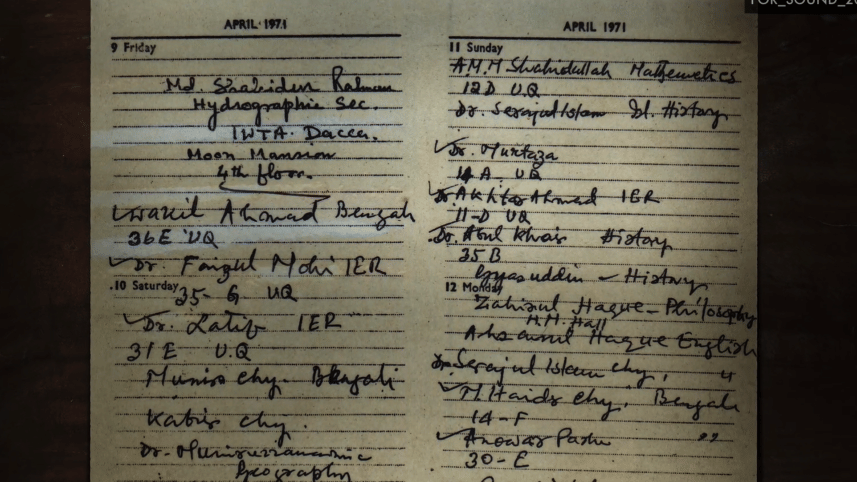 FOR_SOUND_20
APRIL 1971
9 Friday
Md. Shahidur Rahman
Hydrographic Sec.
IWTA. Dacca.
Moon Mansion
4th floor.
Wakil Ahmad Bengali
36 E UQ
Dr. Faizul Mohi IER
10 Saturday
35-G UQ
Dr. Latif IER
31 E U.Q
Munir Chy. Bengali
Kabir Chy.
Dr.
Geography
APRIL 1971
11 Sunday
A.M.M Shahidullah Mathematics
12D U.Q
Dr. Serajul Islam Isl. History
Dr. Murtaza
14 A UQ
Dr. Akhtar Ahmad IER
11-D UQ
Dr. Abul Khair History
35 B
Gyasuddin - History
12 Monday
Zahirul Haque - Philosophy
M.M. Hall
Ahsanul Haque English
Dr. Serajul Islam Chy, "
M. Haider Chy, Bengali
14-F
Anowar Pasha "
30-E